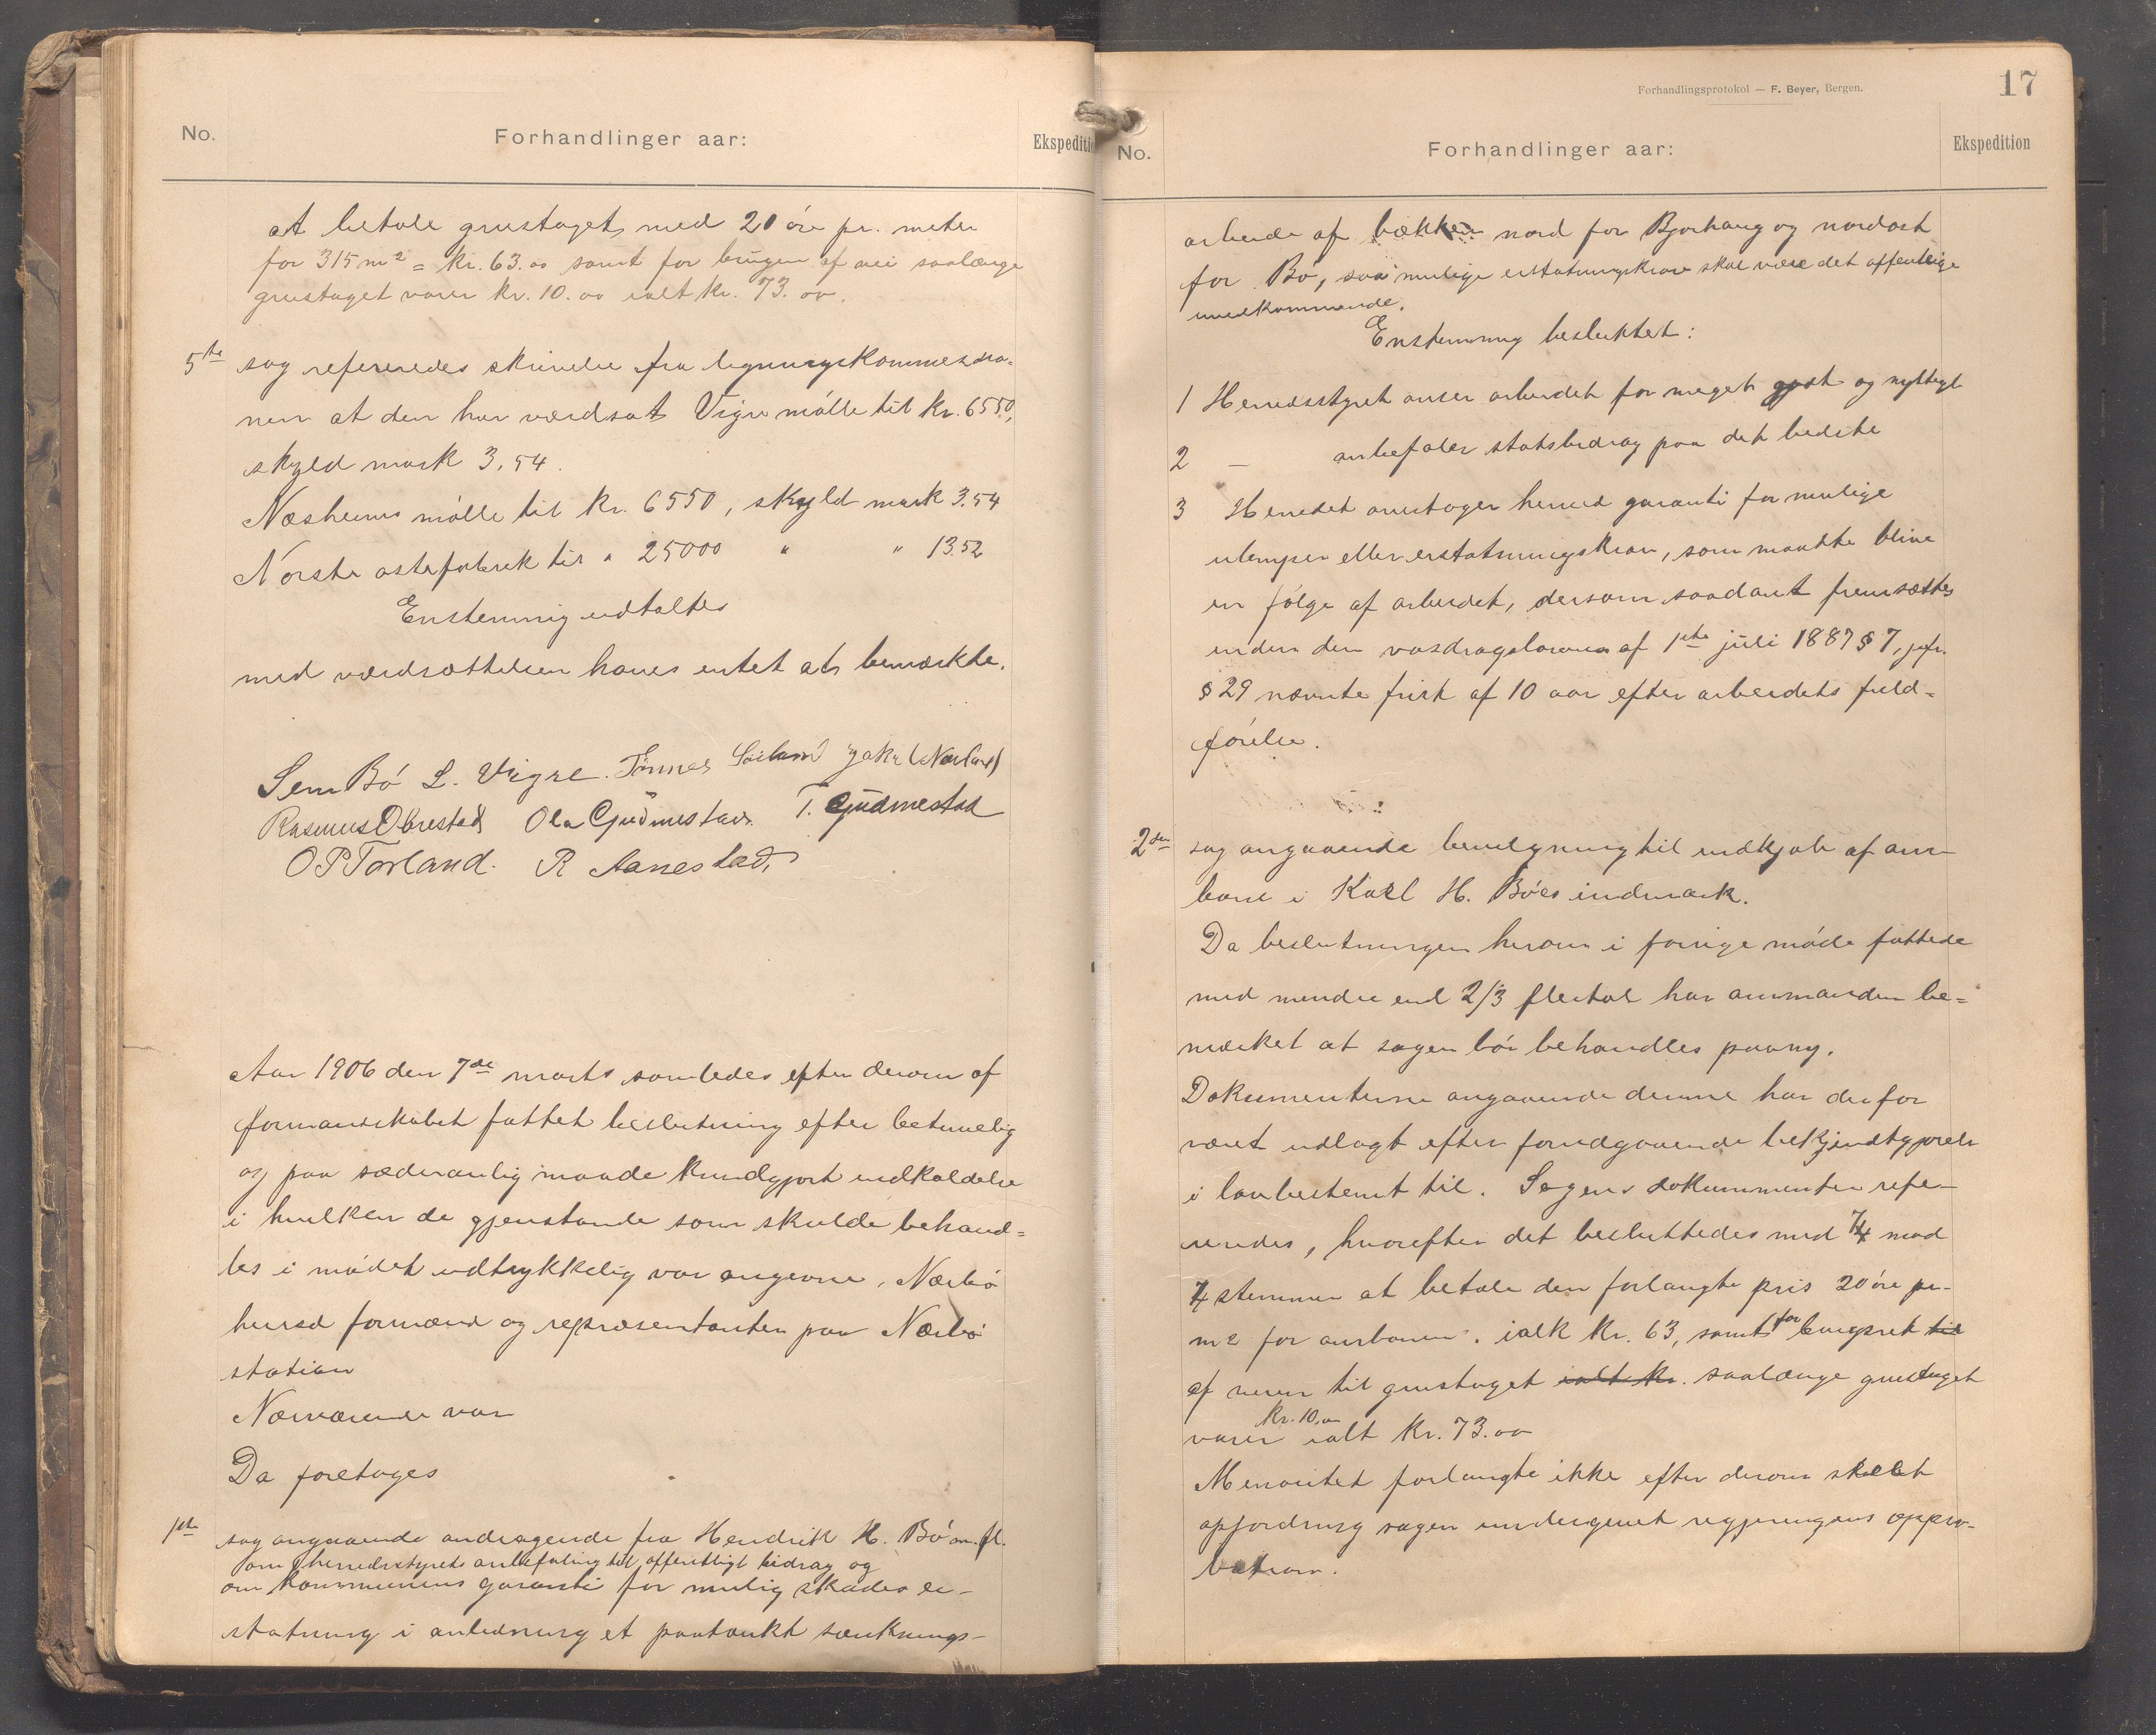 No.
Forhandlinger aar:
Ekspeditio
at betale grustaget med 20 øre pr. meter
for 315 m² = kr. 63.00 samt for brugen af vei saalænge
grustaget varer kr. 10.00 ialt kr. 73.00.
5te sag refereredes skrivelse fra ligningskommesio-
nen at den har værdsat Vigre mølle til kr. 6550,
skyld mark 3,54.
Næsheims mølle til kr. 6550, skyld mark 3.54
Norske ostefabrek til " 25000 " " 13.52
Enstemmig udtaltes
med værdsættelsen haves entet at bemærkte.
Sem Bø L. Vigre. Tønnes Søiland Jak. Nærland
Rasmus Obrestad Ola Gudmestad. T. Gudmestad
O P Torland. R Aanestad,
Aar 1906 den 7de marts samledes efter derom af
formanskabet fattet beslutning efter betimelig
og paa sædvanlig maade kundgjort indkaldelse
i hvilken de gjenstande som skulde behand-
les i mødet udtrykkelig var angevne, Nærbø
herred formænd og repræsentanter paa Nærbø
station
Nærværende var
Da foretoges
1ste sag angaaende andragende fra Hendrik H. Bø m. fl.
om herredsstyrets anbefaling til offentligt bidrag og
om kommunens garanti for mulig skades er-
statning i anledning et paatænkt sænknings-
Forhandlingsprotokol — F. Beyer, Bergen.
17
No.
Forhandlinger aar:
Ekspedition
arbeide af bækken nord for Bjorhaug og nordost
for Bø, saa mulige erstatningskrav skal være det offentlige
uvedkommende.
Enstemmig besluttet:
1 Herredsstyret anser arbeidet for meget godt og nyttigt
2 — anbefaler statsbidrag paa det bedste
3 Herredet overtager herved garanti for mulige
ulemper eller erstatningskrav, som maatte blive
en følge af arbeidet, dersom saadant fremsættes
inden den vasdragslovens af 1ste juli 1887 § 7, jvfr.
§ 29 nævnte frist af 10 aar efter arbeidets fuld-
førelse.
2den sag angaaende bevilgning til indkjøb af aur-
bane i Karl H. Bøes indmark.
Da beslutningen herom i forrige møde fattede
med mendre end 2/3 flertal har ammanden be-
mærket at sagen bør behandles paany.
Dokumenterne angaaende denne har derfor
været udlagt efter forudgaaende bekjendtgjørels
i lovbestemt til. Sagens dokummenter refe-
reredes, hvorefter det besluttedes med 7 mod
4 stemmer at betale den forlangte pris 20 øre pr.
m2 for aurbanen. ialt kr. 63, samt for brugsret til
af veien til grustaget ialt kr. saalænge grustaget
kr. 10.00
varer ialt kr. 73.00
Menoritet forlangte ikke efter derom skeet
opfordring sagen undergivet regjeringens appro-
bation.